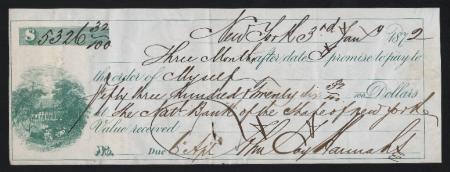 $5326 32/100 New York 3rd Jany 1872
Three Months after date I promise to pay to
the order of Myself
fifty three hundred & twenty six 32/100 Dollars
at The Nat. Bank of the State of new york
Value received
No. Due 6 Apl Wm